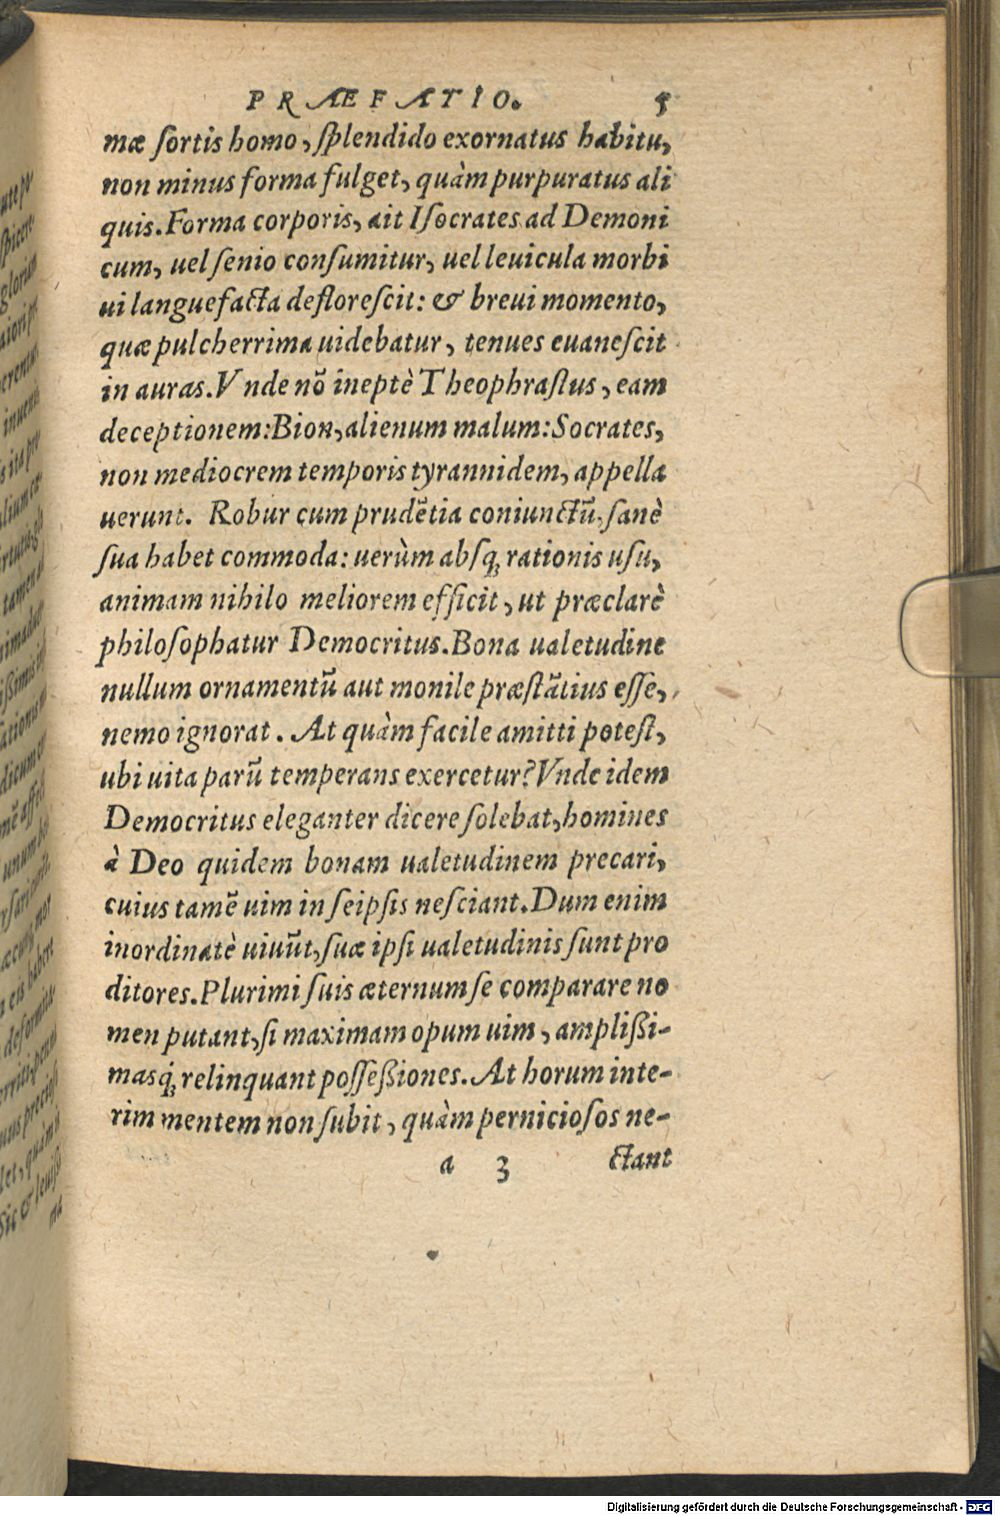 PRÆFATIO. 5
mæ ſortis homo, ſplendido exornatus habitu,
non minus forma fulget, quàm purpuratus ali
quis. Forma corporis, ait Iſocrates ad Demoni
cum, uel ſenio conſumitur, uel leuicula morbi
ui languefacta defloreſcit: & breui momento,
quæ pulcherrima uidebatur, tenues euaneſcit
in auras. Vnde nō ineptè Theophraſtus, eam
deceptionem: Bion, alienum malum: Socrates,
non mediocrem temporis tyrannidem, appella
uerunt. Robur cum prudētia coniunctū, ſanè
ſua habet commoda: uerùm abſq; rationis uſu,
animam nihilo meliorem efficit, ut præclarè
philoſophatur Democritus. Bona ualetudine
nullum ornamentū aut monile præſtātius eſſe,
nemo ignorat. At quàm facile amitti poteſt,
ubi uita parū temperans exercetur? Vnde idem
Democritus eleganter dicere ſolebat, homines
à Deo quidem bonam ualetudinem precari,
cuius tamē uim in ſeipſis neſciant. Dum enim
inordinatè uiuūt, ſuæ ipſi ualetudinis ſunt pro
ditores. Plurimi ſuis æternum ſe comparare no
men putant, ſi maximam opum uim, amplißi-
masq́; relinquant poſſeßiones. At horum inte-
rim mentem non ſubit, quàm pernicioſos ne-
a 3 ctant
Digitalisierung gefördert durch die Deutsche Forschungsgemeinschaft - DFG